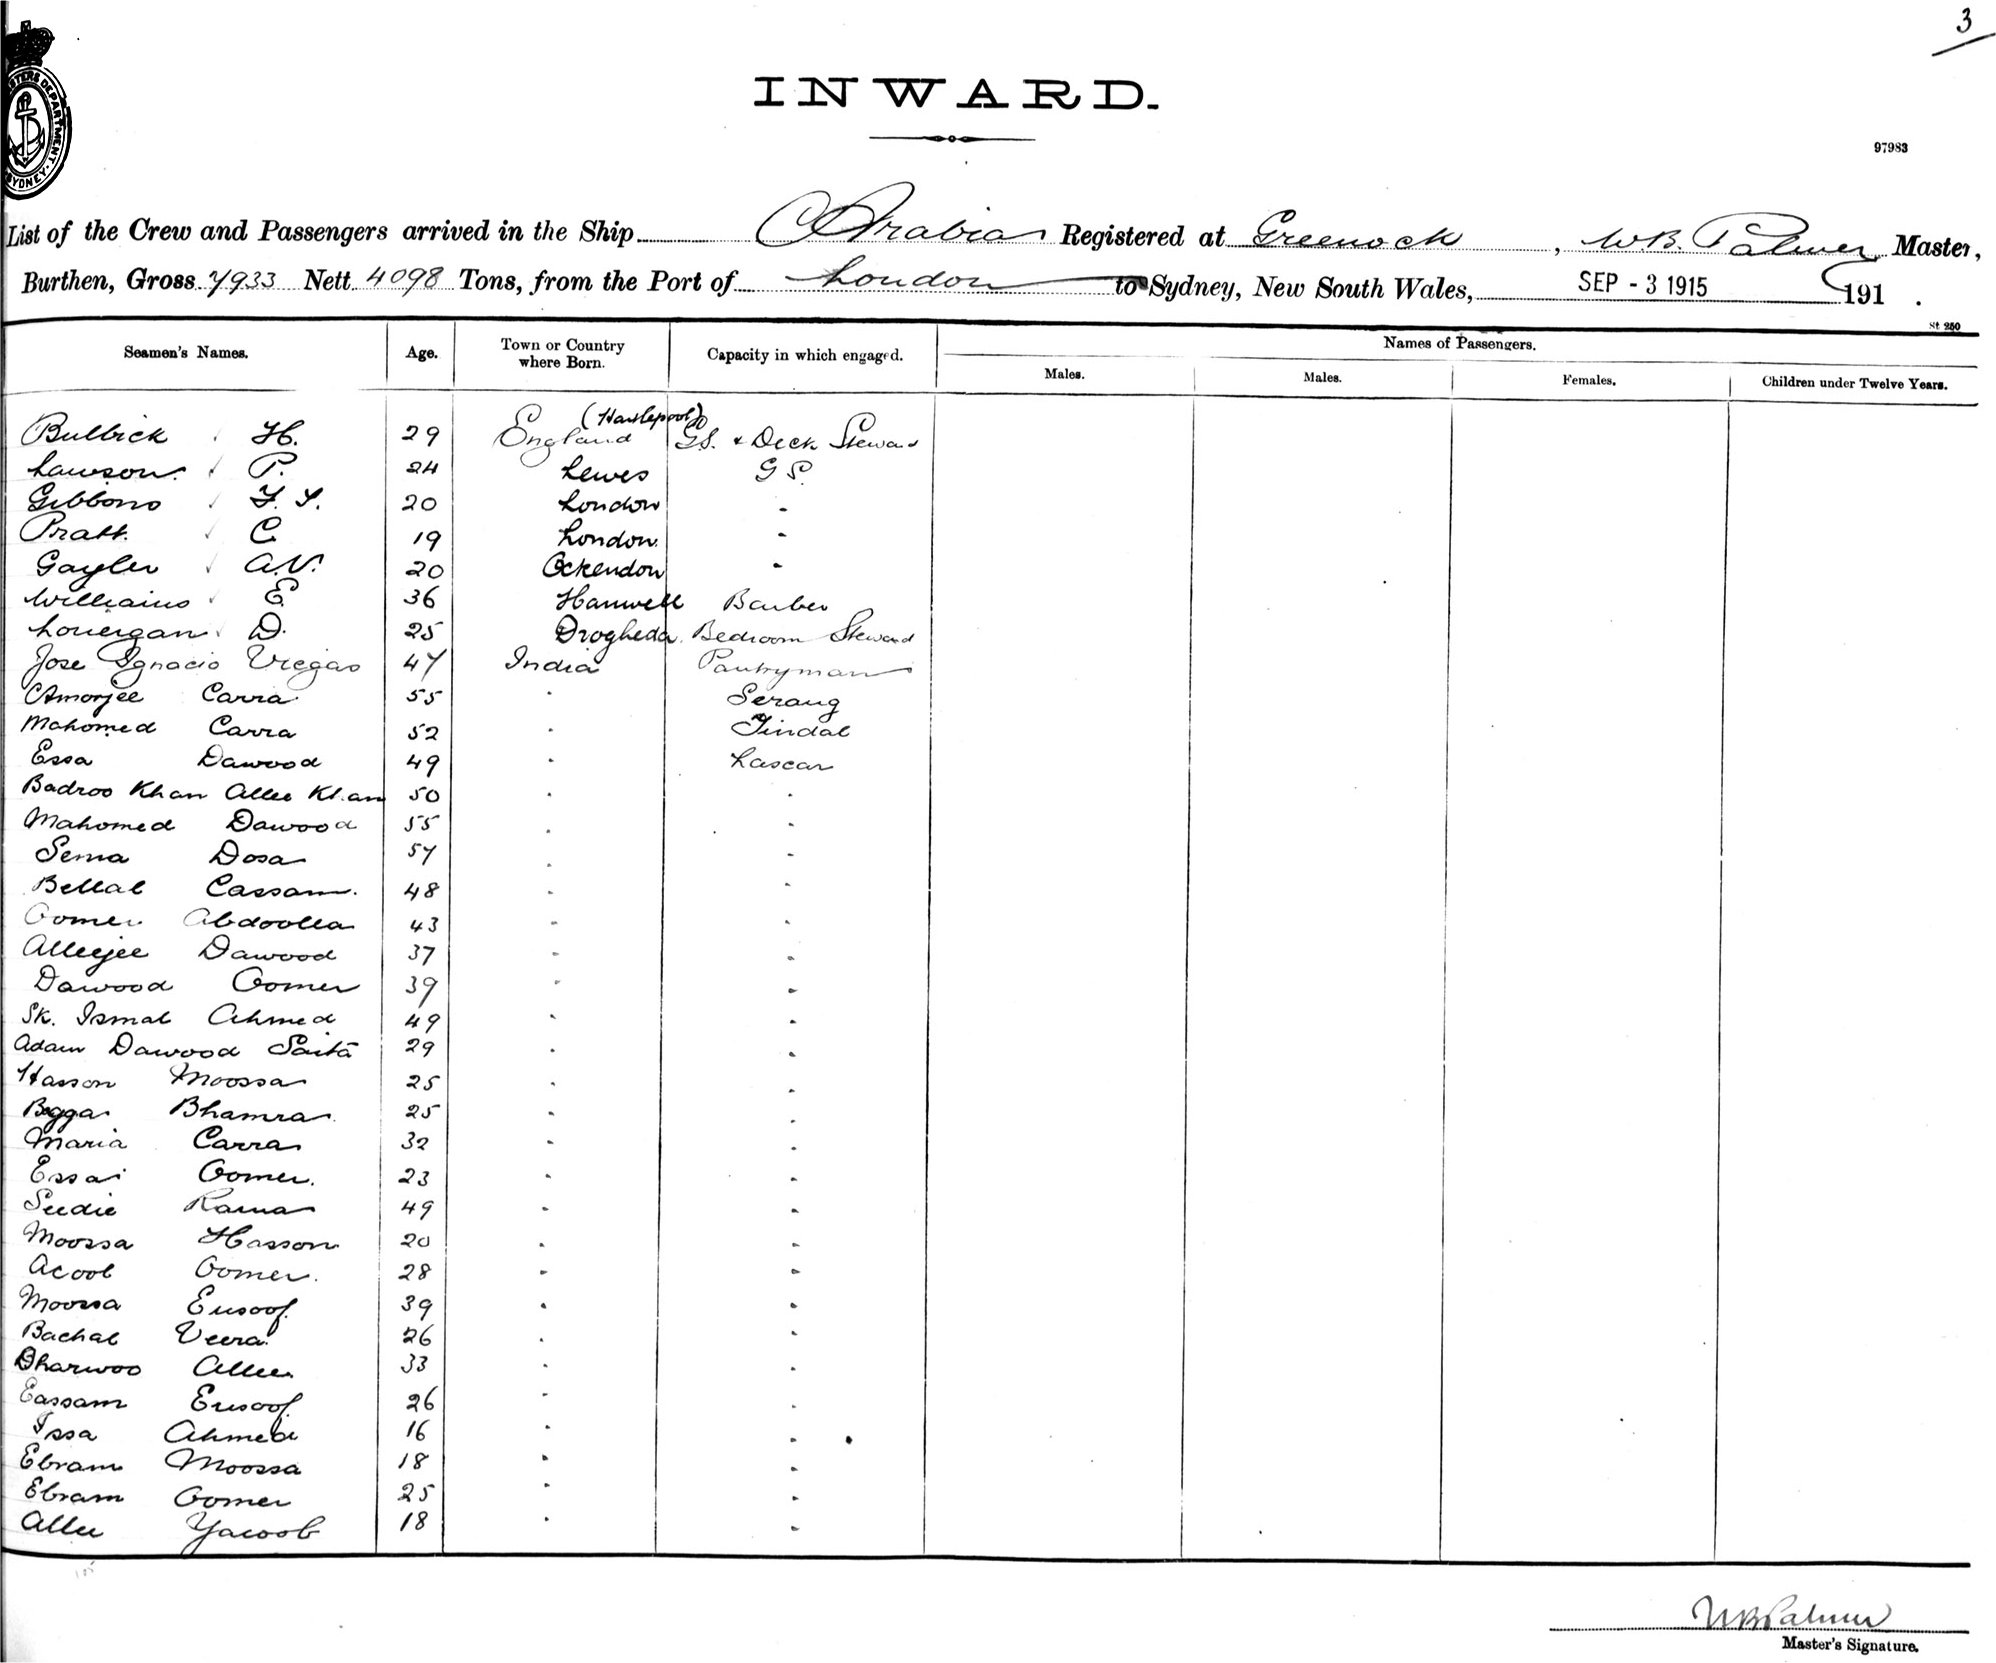 3
INWARD.
97983
CUSTOMS DEPARTMENT. SYDNEY.
List of the Crew and Passengers arrived in the Ship Arabia Registered at Greenock, W.B. Palmer Master,
Burthen, Gross 7933 Nett 4098 Tons, from the Port of London to Sydney, New South Wales, SEP - 3 1915 191 .
St 250
Seamen's Names. Age. Town or Country where Born. Capacity in which engaged. Names of Passengers.
Males. Males. Females. Children under Twelve Years.
Bulbick H. 29 England (Hartlepool) G.S. & Deck Steward
Lawson. P. 24 Lewes G S.
Gibbons F. S. 20 London "
Pratt. C. 19 London. "
Gayler A.V. 20 Ockendon "
Williams E. 36 Hanwell Barber
Lonergan D. 25 Drogheda. Bedroom Steward
Jose Ignacio Viegas 47 India Pantryman
Amorjee Carra 55 " Serang
Mahomed Carra 52 " Tindal
Essa Dawood 49 " Lascar
Badroo Khan Allee Khan 50 " "
Mahomed Dawood 55 " "
Sema Dosa 57 " "
Bellal Cassam. 48 " "
Oomer Abdoolla 43 " "
Alleejee Dawood 37 " "
Dawood Oomer 39 " "
Sk. Ismal Ahmed 49 " "
Adam Dawood Saita 29 " "
Hasson Moossa 25 " "
Begga Bhamra. 25 " "
Maria Carra 32 " "
Essa Oomer. 23 " "
Seedie Rama 49 " "
Moossa Hasson 20 " "
Acoob Oomer. 28 " "
Moossa Eusoof. 39 " "
Bachal Veera. 26 " "
Dharwoo Allee. 33 " "
Cassam Eusoof. 26 " "
Issa Ahmed 16 " "
Ebram Moossa 18 " "
Ebram Oomer 25 " "
Allee Yacoob 18 " "
WB Palmer
Master's Signature.